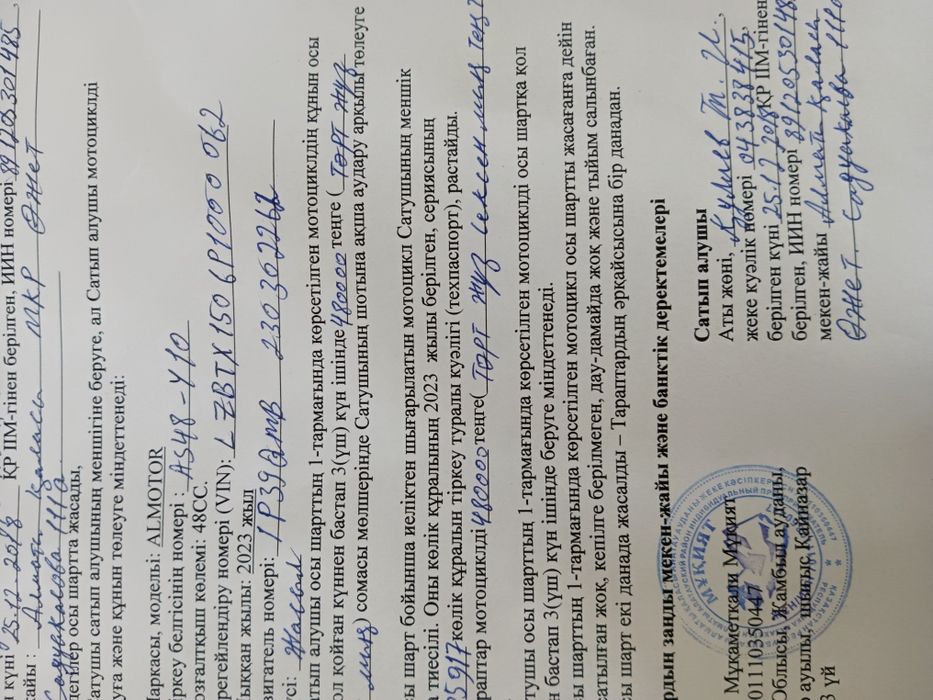 күні 25.12.2018 ҚР ІІМ-гінен берілген, ИИН номері 891205301485,
кайы : Алматы қаласы МКР Әжет
Садуакасова 111а
делер осы шартта жасады,
Сатушы сатып алушының меншігіне беруге, ал Сатып алушы мотоциклді
уға және құнын төлеуге міндеттенеді:
Маркасы, моделі: ALMOTOR
іркеу белгісінің номері : AS48-Y10
озғалтқыш көлемі: 48СС.
эрегейлендіру номері (VIN): LZBTX1506P1000062
ыққан жылы: 2023 жыл
вигатель номері: 1P39QMB 230302262
үсі: Жасыл
атып алушы осы шарттың 1-тармағында көрсетілген мотоциклдің құнын осы
ол қойған күннен бастап 3(үш) күн ішінде 480000 теңге ( төрт жүз
мың) сомасы мөлшерінде Сатушының шотына ақша аудару арқылы төлеуге
сы шарт бойынша иеліктен шығарылатын мотоцикл Сатушының меншік
а тиесілі. Оны көлік құралының 2023 жылы берілген, сериясының
5917 көлік құралын тіркеу туралы куәлігі (техпаспорт), растайды.
раптар мотоциклді 480000 теңге( төрт жүз сексен мың теңг
тушы осы шарттың 1-тармағында көрсетілген мотоциклді осы шартқа қол
н бастап 3(үш) күн ішінде беруге міндеттенеді.
ы шарттың 1-тармағында көрсетілген мотоцикл осы шартты жасағанға дейін
атылған жоқ, кепілге берілмеген, дау-дамайда жоқ және тыйым салынбаған.
сы шарт екі данада жасалды – Тараптардың әрқайсысына бір данадан.
рдың заңды мекен-жайы және банктік деректемелері
Мұқаметкали Мұқият
01111035044
Облысы, Жамбыл ауданы,
ауылы, шыңыс Қайназар
3 үй
МҰҚИЯТ
Сатып алушы
Аты жөні,
жеке куәлік номері 043838415,
берілген күні 25.12.2018 ҚР ІІМ-гінен
берілген, ИИН номері 891205301485
мекен-жайы Алматы қаласы
Әжет Садуакасова 111а